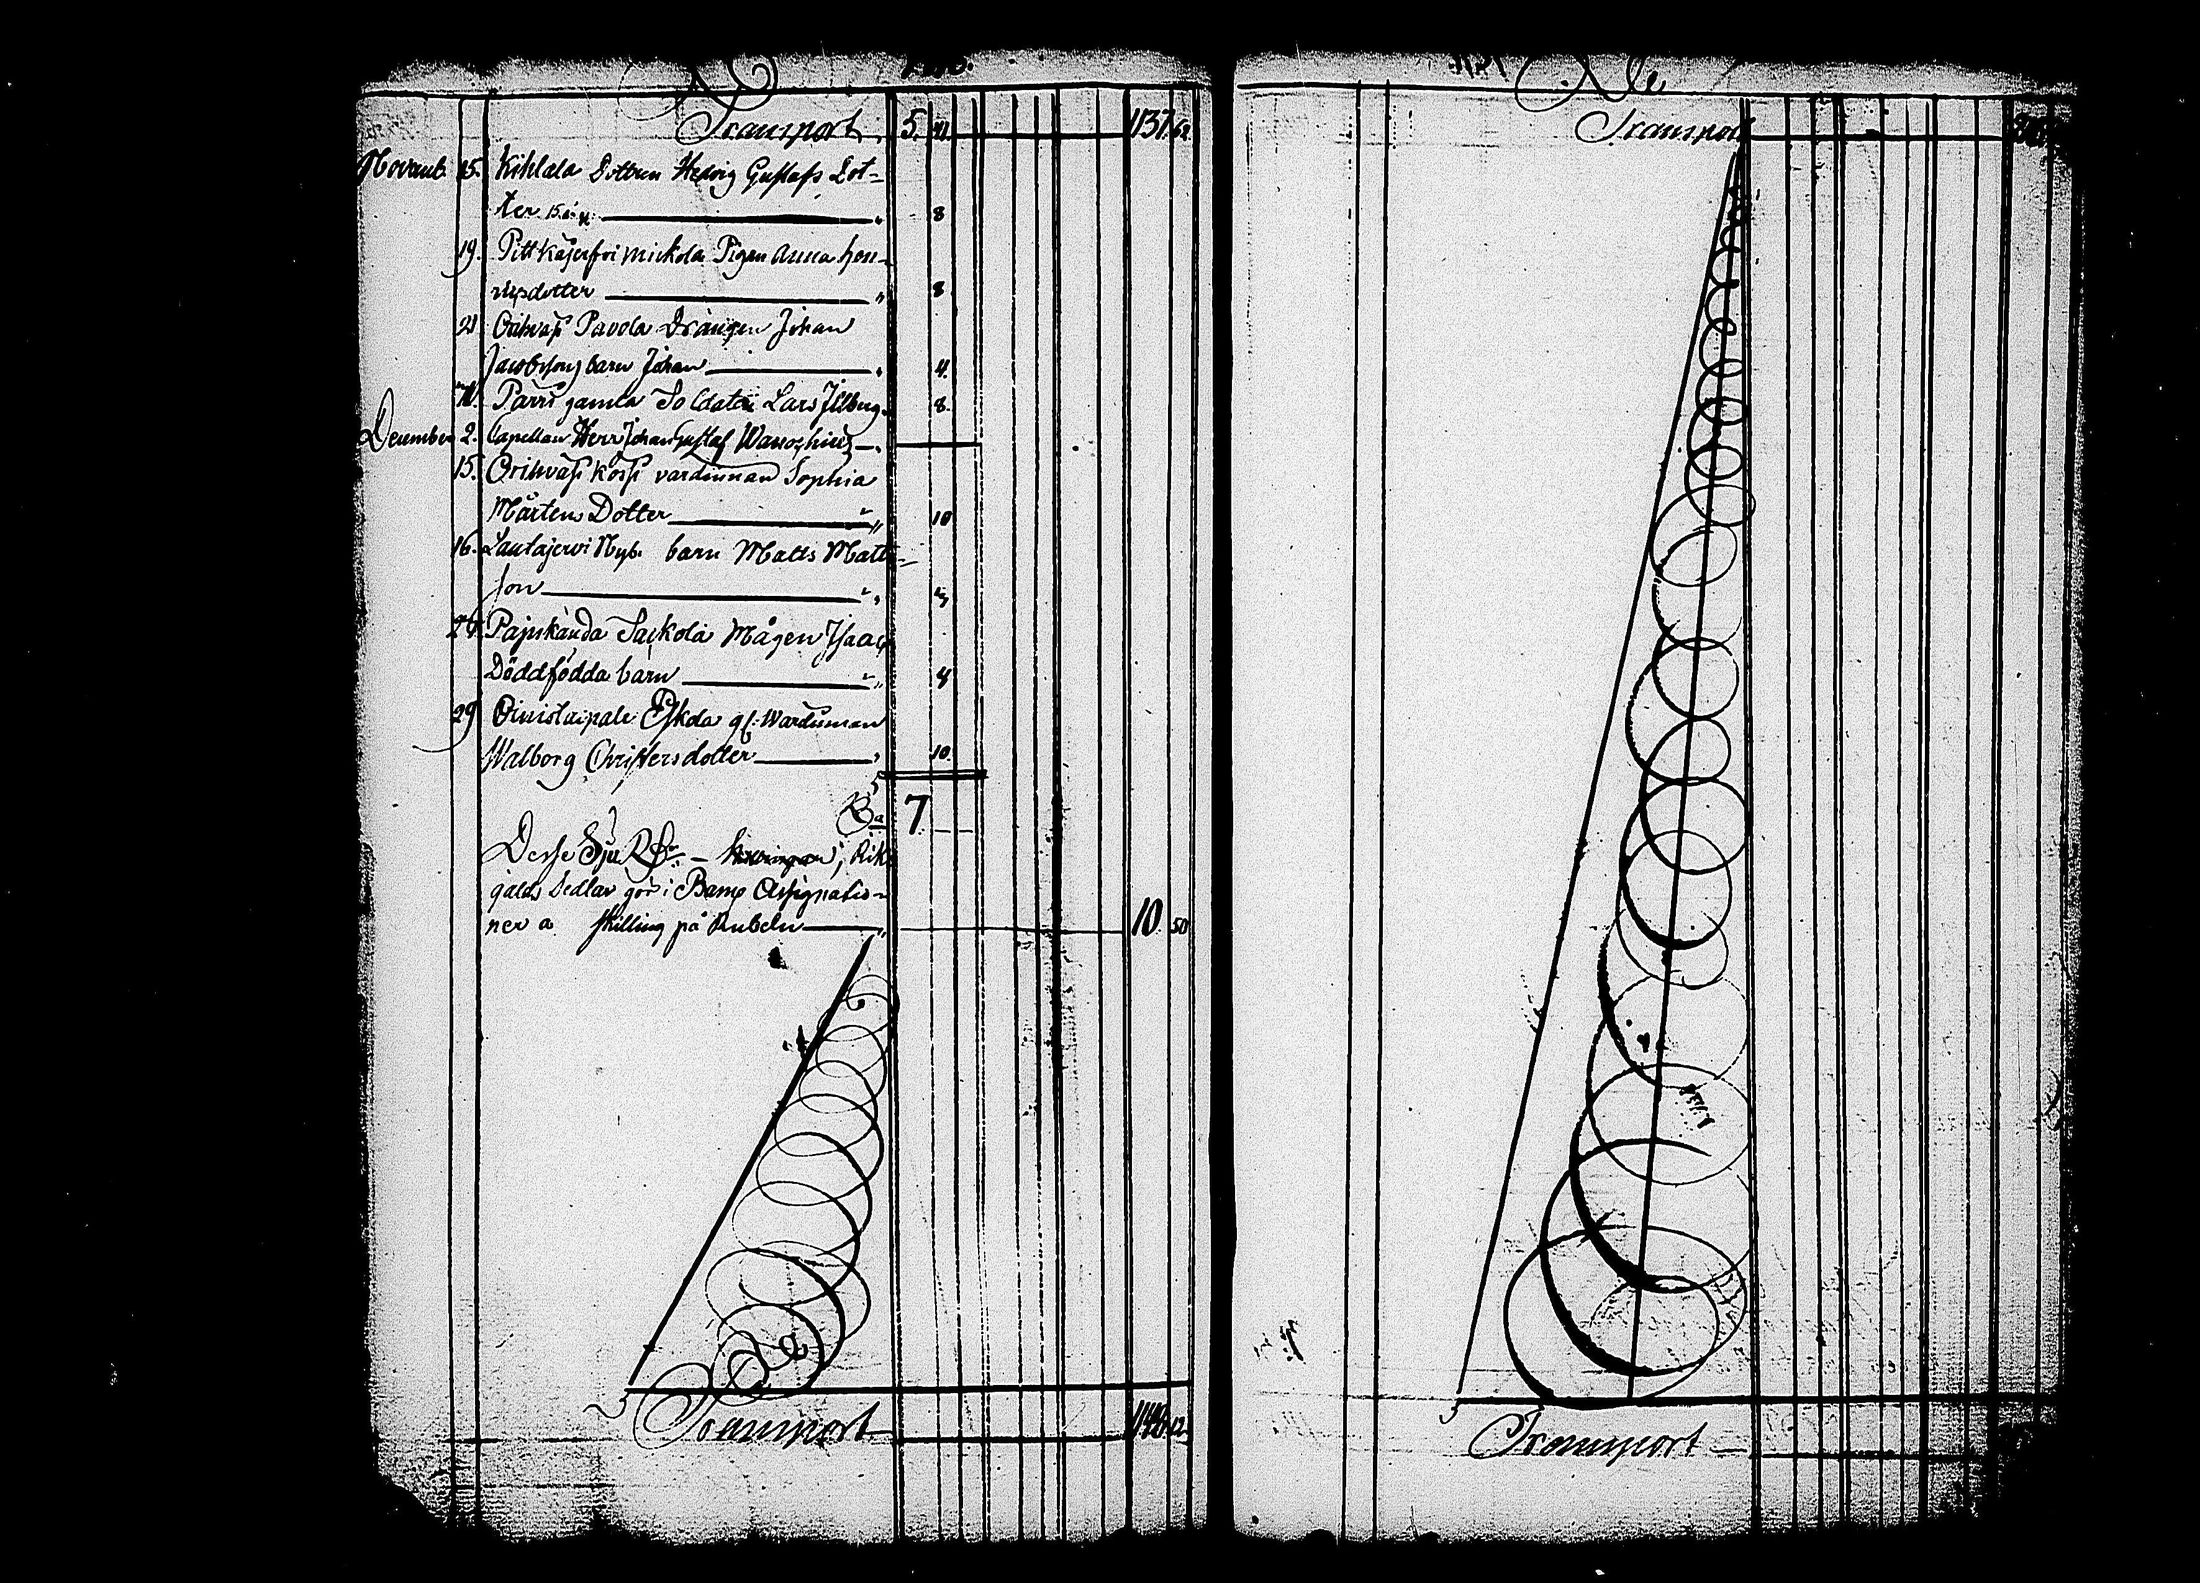 Transport 5. 1137. 62.
Novemb. 15. Kihlala Dottren Hedvig Gustafs Dot-
ter 15 8
19. Pittkäjerfvi Mickola Pigan Anna Hen-
dersdotter 8
21 Orihvasi Pavola Drängen Johan
Jacobsons barn Johan 4.
Parri gamla Soldaten Lars 8.
December 2. Capellan Herr Johan Gustaf
15. Orihvasi Kossi vardinnan Sophia
Mårtens Dotter 10
16. Lautajervi Nyb. barn Matts Matts-
son
26. Pajuskanda Mågen Isaacs
Döddfödda barn 4
29 Oinislaipale Eskola gl. Wardinnan
Walborg Christersdotter 10.
7
Desse Sju Rdr - Riks
gälds Sedlar gör i Banco Assignatio-
ner a skilling på Rubeln 10. 50
Transport 1148. 12
Transport
Transport